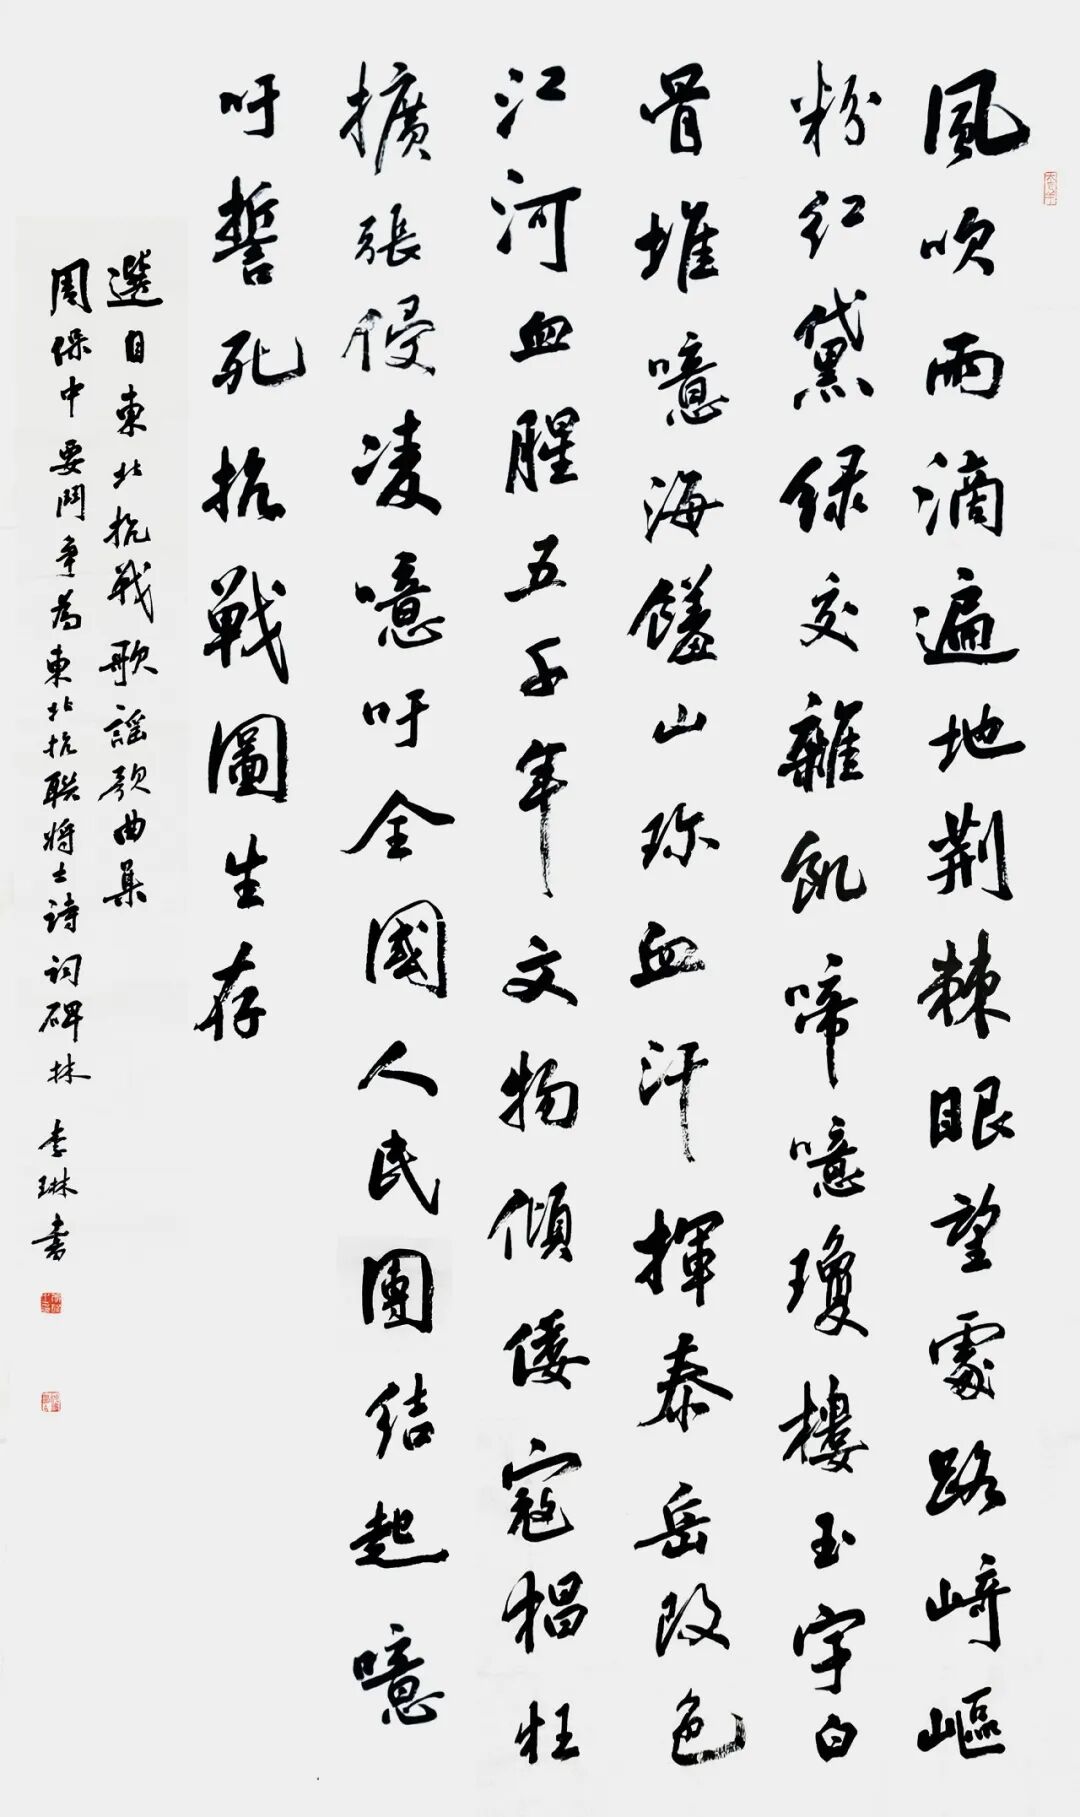 風吹雨滴遍地荆棘眼望處路崎嶇
粉红黛绿交雜飢啼噫瓊樓玉宇白
骨堆噫海饈山珎血汗揮泰岳改色
江河血腥五千年文物傾倭寇猖狂
擴張侵凌噫吁全國人民團结起噫
吁誓死抗戰圖生存
選自東北抗戰歌謡歌曲集
周保中要鬥争為東北抗聯將士詩詞碑林 李琳書